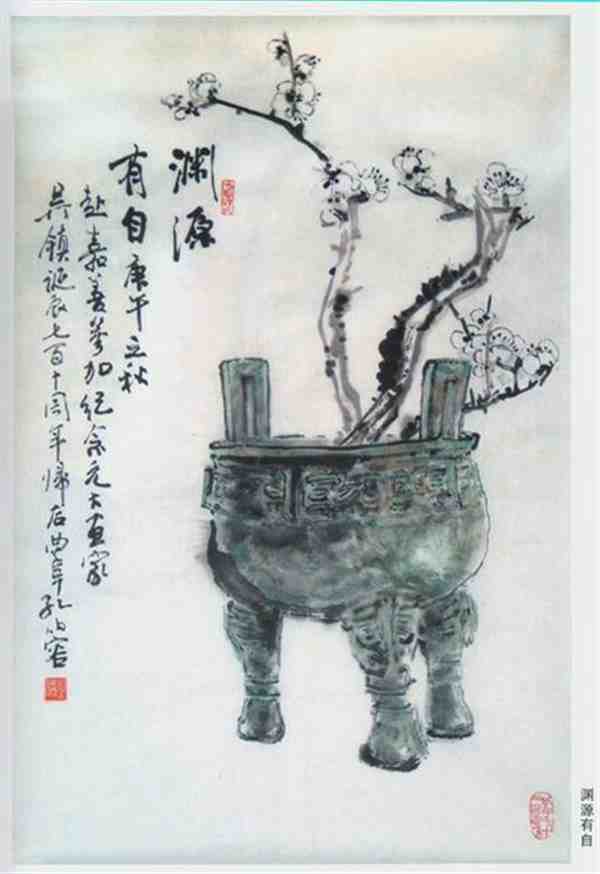 渊源
有自庚午立秋
赴嘉善参加纪念元大画家
吴镇诞辰七百十周年归后曲阜孔伯容
渊源有自